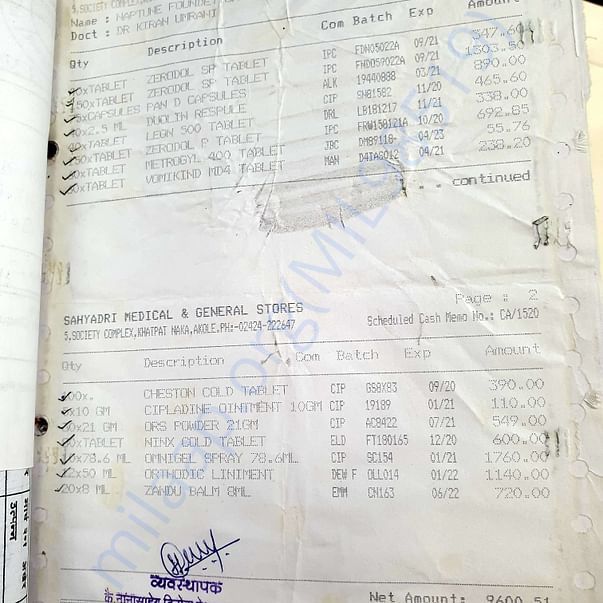 5,SOCIETY COMPLEX,
Name : NAPTUNE FOUNDET
Doct : DR KIRAN UMRANI
Qty Description Com Batch Exp Amount
TABLET ZERODOL SP TABLET IPC FDN05022A 09/21 347.60
50xTABLET ZERODOL SP TABLET IPC 09/21 1303.50
5xCAPSULES PAN D CAPSULES ALK 19440888 03/21 890.00
2.5 ML DUOLIN RESPULE CIP SN81582 11/20 465.60
TABLET LEON 500 TABLET DRL LB181217 11/21 338.00
50xTABLET ZERODOL P TABLET IPC FRW158121A 10/20 692.85
TABLET METROGYL 400 TABLET JBC DM89118- 04/23 55.76
TABLET VOMIKIND MD4 TABLET MAN D4IAS012 04/21 238.20
.. continued
Page : 2
SAHYADRI MEDICAL & GENERAL STORES
5,SOCIETY COMPLEX,KHATPAT NAKA,AKOLE.PH:-02424-222647 Scheduled Cash Memo No.: CA/1520
Qty Description Com Batch Exp Amount
00x. CHESTON COLD TABLET CIP GS8X83 09/20 390.00
x10 GM CIPLADINE OINTMENT 10GM CIP 19189 01/21 110.00
x21 GM ORS POWDER 21GM CIP AC8422 07/21 549.00
xTABLET NINX COLD TABLET ELD FT180165 12/20 600.00
x78.6 ML OMNIGEL SPRAY 78.6ML CIP SC154 01/21 1760.00
12x50 ML ORTHODIC LINIMENT DEW F OLL014 01/22 1140.00
20x8 ML ZANDU BALM 8ML EMM CN163 06/22 720.00
व्यवस्थापक
Net Amount: 9600.51